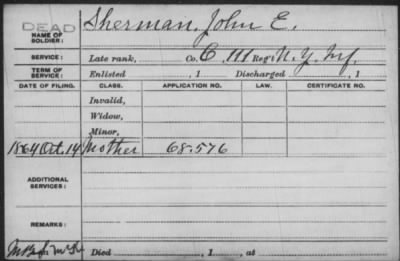 DEAD
NAME OF SOLDIER: Sherman, John E.
SERVICE: Late rank, Co. C, 111 Reg't N. Y. Inf.
TERM OF SERVICE: Enlisted , 1 Discharged , 1
DATE OF FILING. CLASS. APPLICATION NO. LAW. CERTIFICATE NO.
Invalid,
Widow,
Minor,
1864 Oct. 14 Mother 68.576
ADDITIONAL SERVICES:
REMARKS:
Died , 1 , at